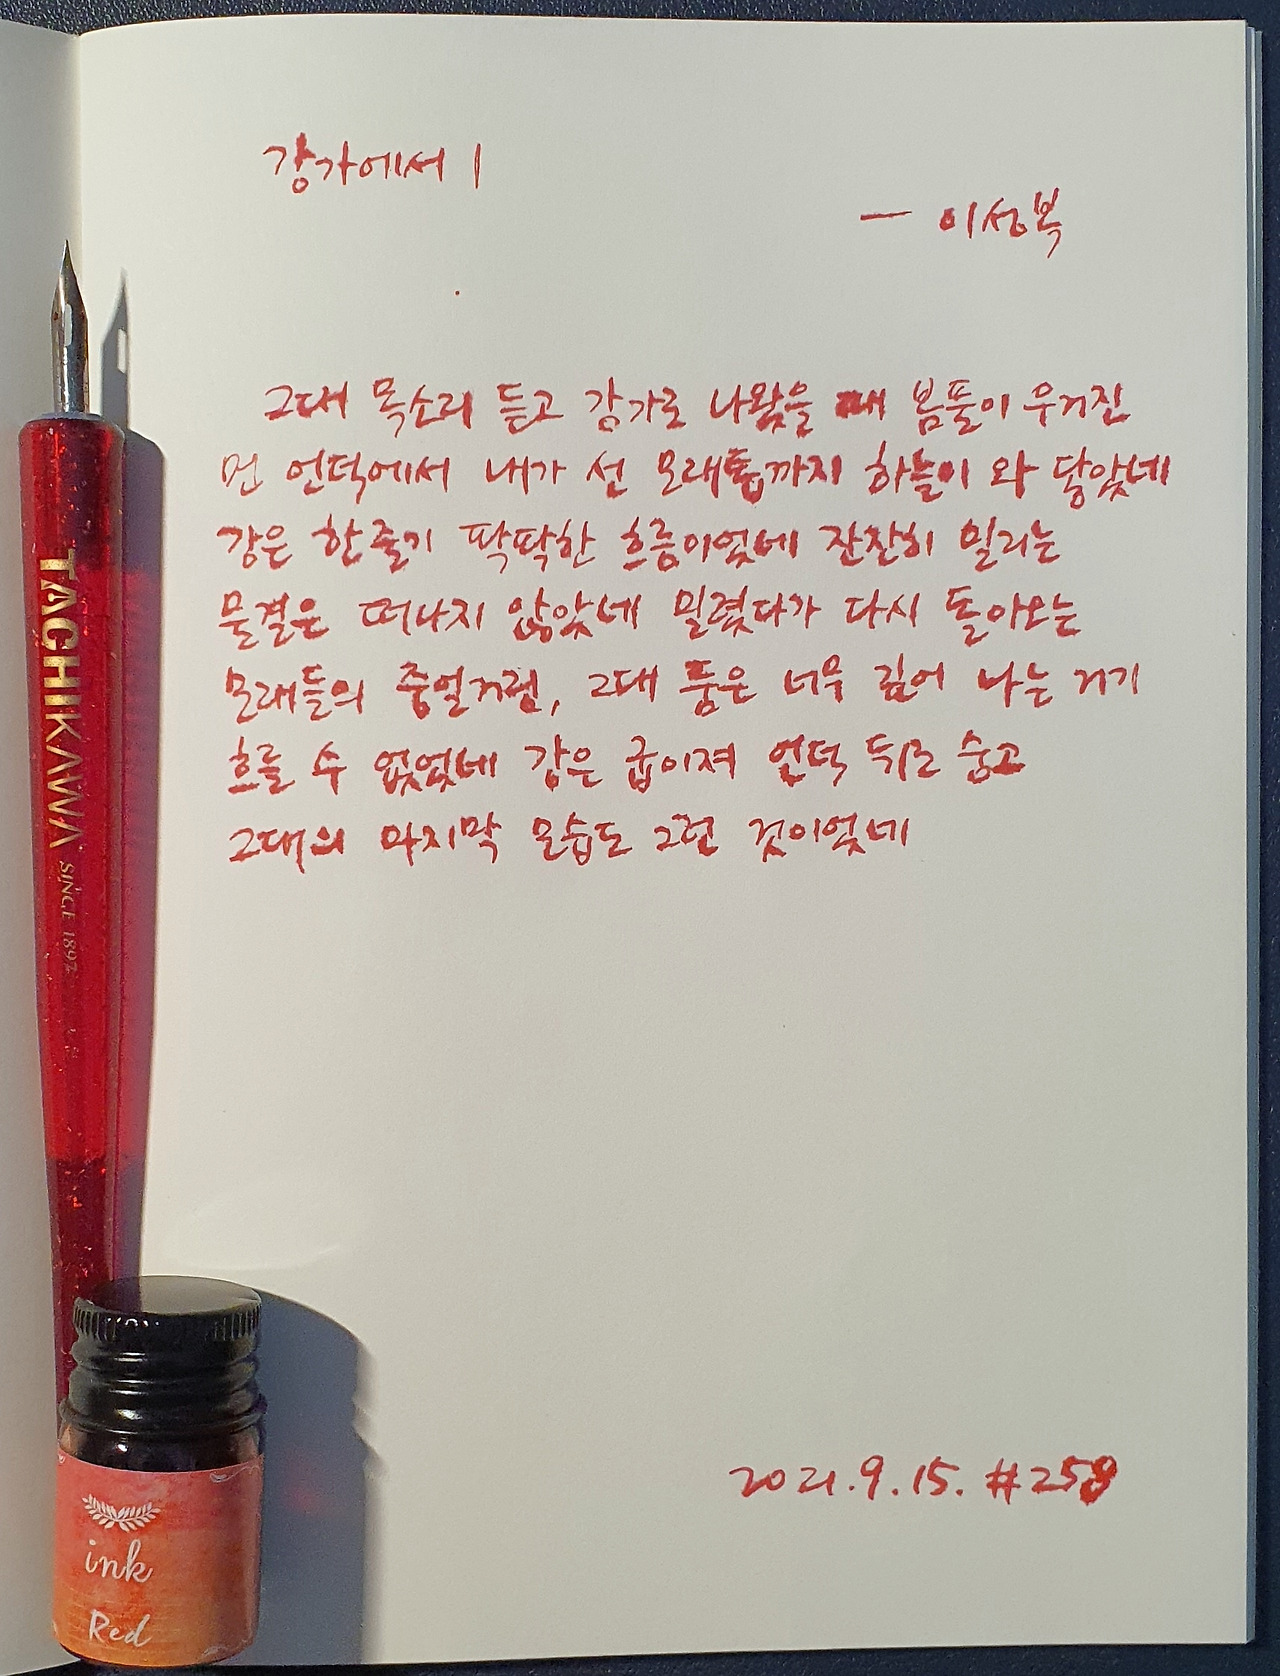 강가에서 1
— 이성복
그대 목소리 듣고 강가로 나왔을 때 봄풀이 우거진
먼 언덕에서 내가 선 모래톱까지 하늘이 와 닿았네
강은 한 줄기 팍팍한 흐름이었네 잔잔히 밀리는
물결은 떠나지 않았네 밀렸다가 다시 돌아오는
모래들의 중얼거림, 그대 품은 너무 깊어 나는 거기
흐를 수 없었네 강은 굽이져 언덕 뒤로 숨고
그대의 마지막 모습도 그런 것이었네
2021.9.15. #259
TACHIKAWA SINCE 1897
ink
Red